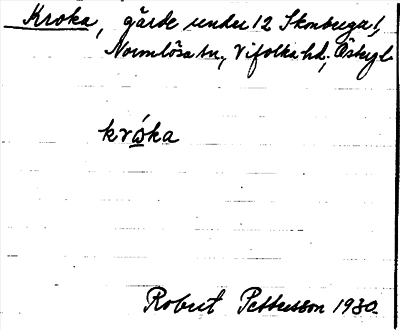 Kroka, gärde under 12 Skonberga!,
Normlösa sn, Vifolka hd, Östergl
króka
Robert Pettersson 1930.